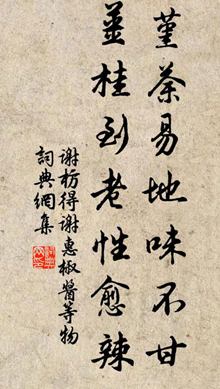 堇荼易地味不甘
薑桂到老性愈辣
谢枋得谢惠椒醬等物
詞典網集